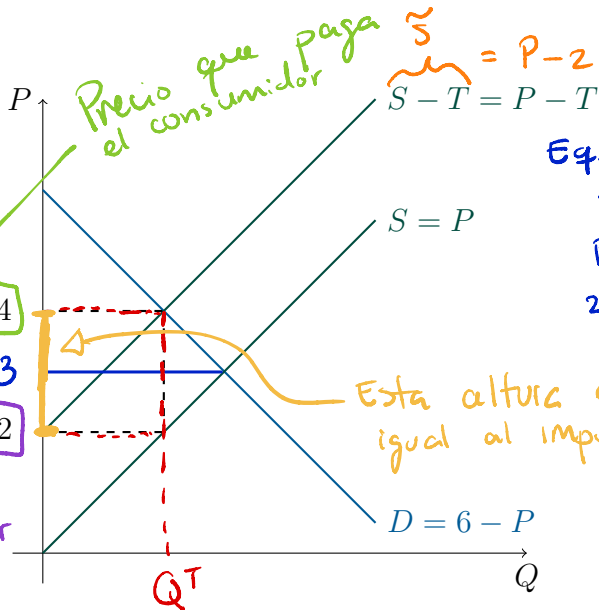 Precio que paga
el consumidor
S̃
= P-2
P
S − T = P − T
Eq
S = P
4
3
2
Esta altura
igual al imp
D = 6 − P
r
Q
Qᵀ